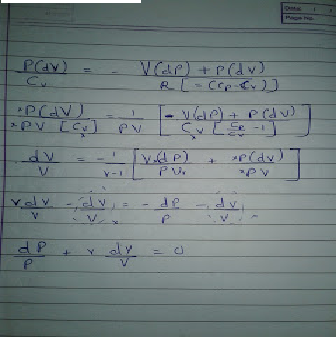 P(dV) / Cv = - V(dP) + P(dV) / R [-(Cp-Cv)]
P(dV) / PV [Cv] = 1 / PV [ - V(dP) + P(dV) / Cv [Cp/Cv -1] ]
dV / V = -1 / γ-1 [ V(dP) / PV + P(dV) / PV ]
γ dV / V - dV / V = - dP / P - dV / V
dP / P + γ dV / V = 0